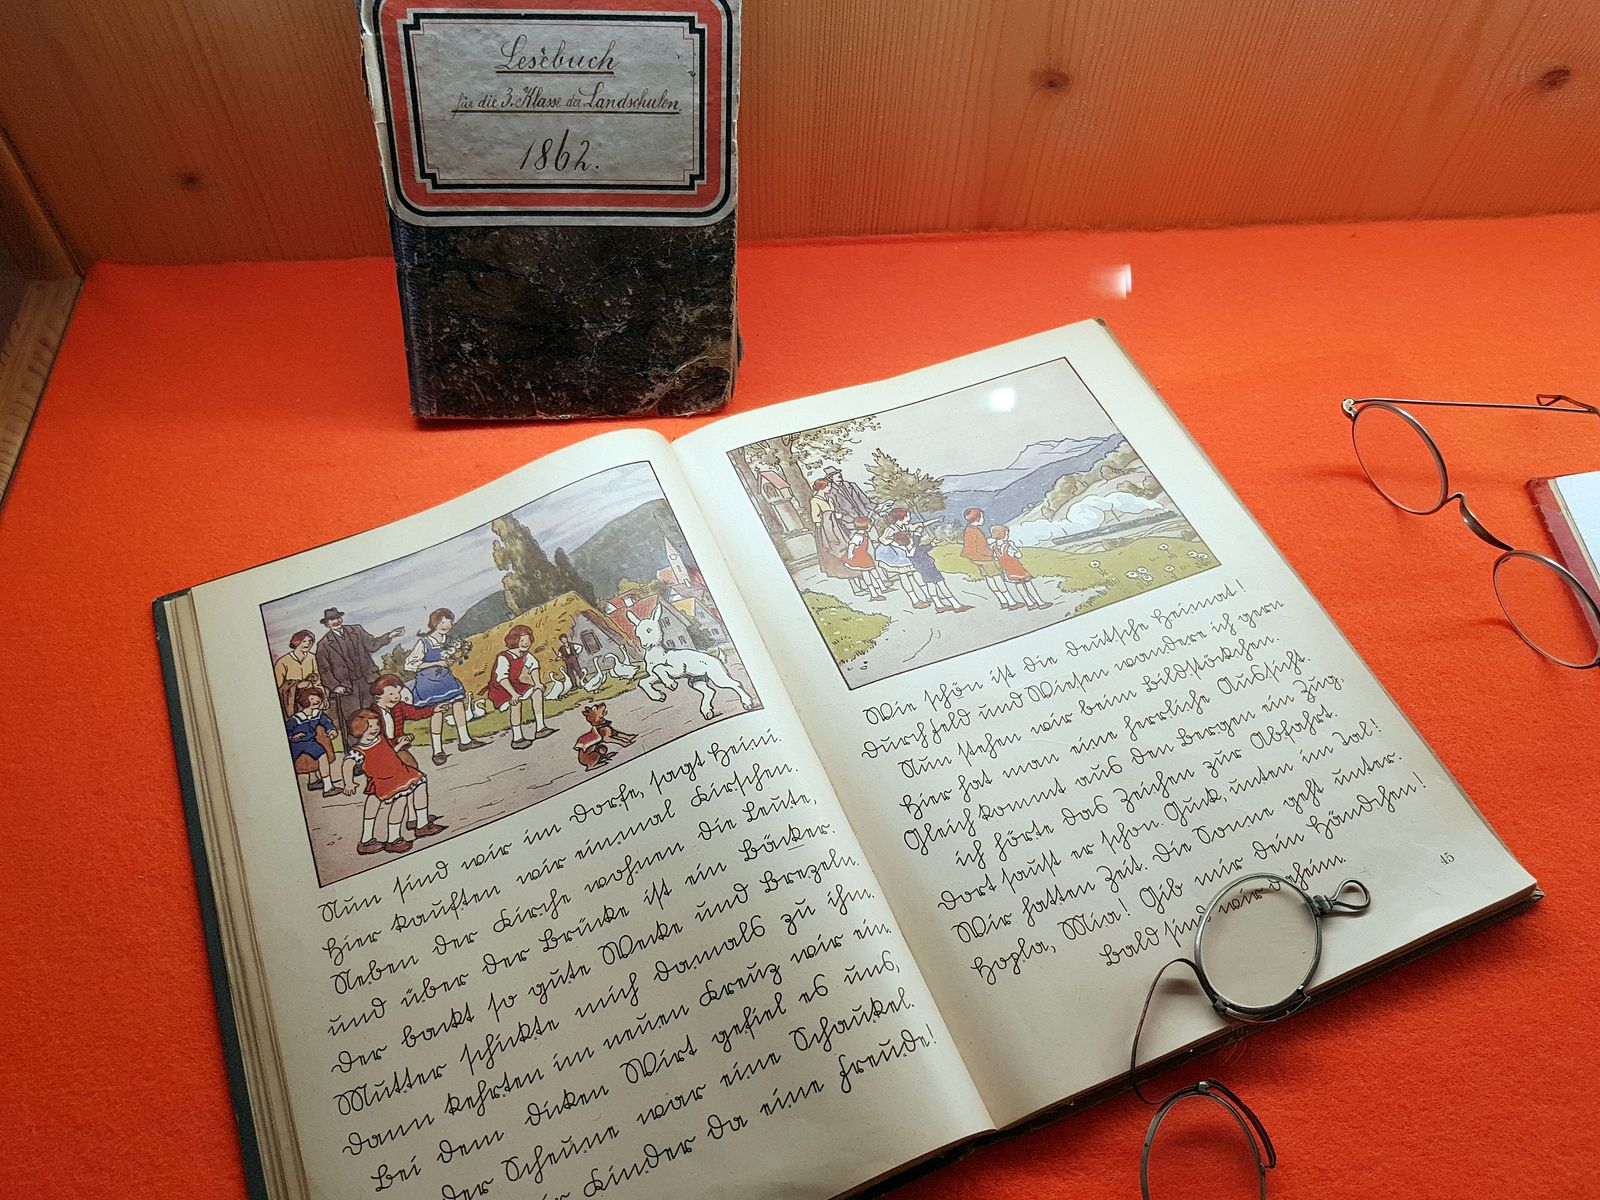 Lesebuch
für die 3. Klasse der Landschulen.
1862.
Nun sind wir im Dorfe, sagt Heini.
Hier kauften wir einmal Kirschen.
Neben der Kirche wohnen die Leute,
und über der Brücke ist ein Bäcker.
Der backt so gute Wecke und Brezeln.
Mutter schickte mich damals zu ihm.
Dann kehrten im neuen Kreuz wir ein.
Bei dem dicken Wirt gefiel es uns,
der Scheune war eine Schaukel.
Kinder da eine Freude!
Wie schön ist die deutsche Heimat!
Durch Feld und Wiesen wandere ich gern
Nun stehen wir beim Bildstöckchen.
Hier hat man eine herrliche Aussicht.
Gleich kommt aus den Bergen ein Zug,
ich hörte das Zeichen zur Abfahrt.
Dort saust er schon. Guck, unten im Tal!
Wir hatten Zeit. Die Sonne geht unter.
Hopla, Mia! Gib mir dein Händchen!
Bald sind wir daheim.
45